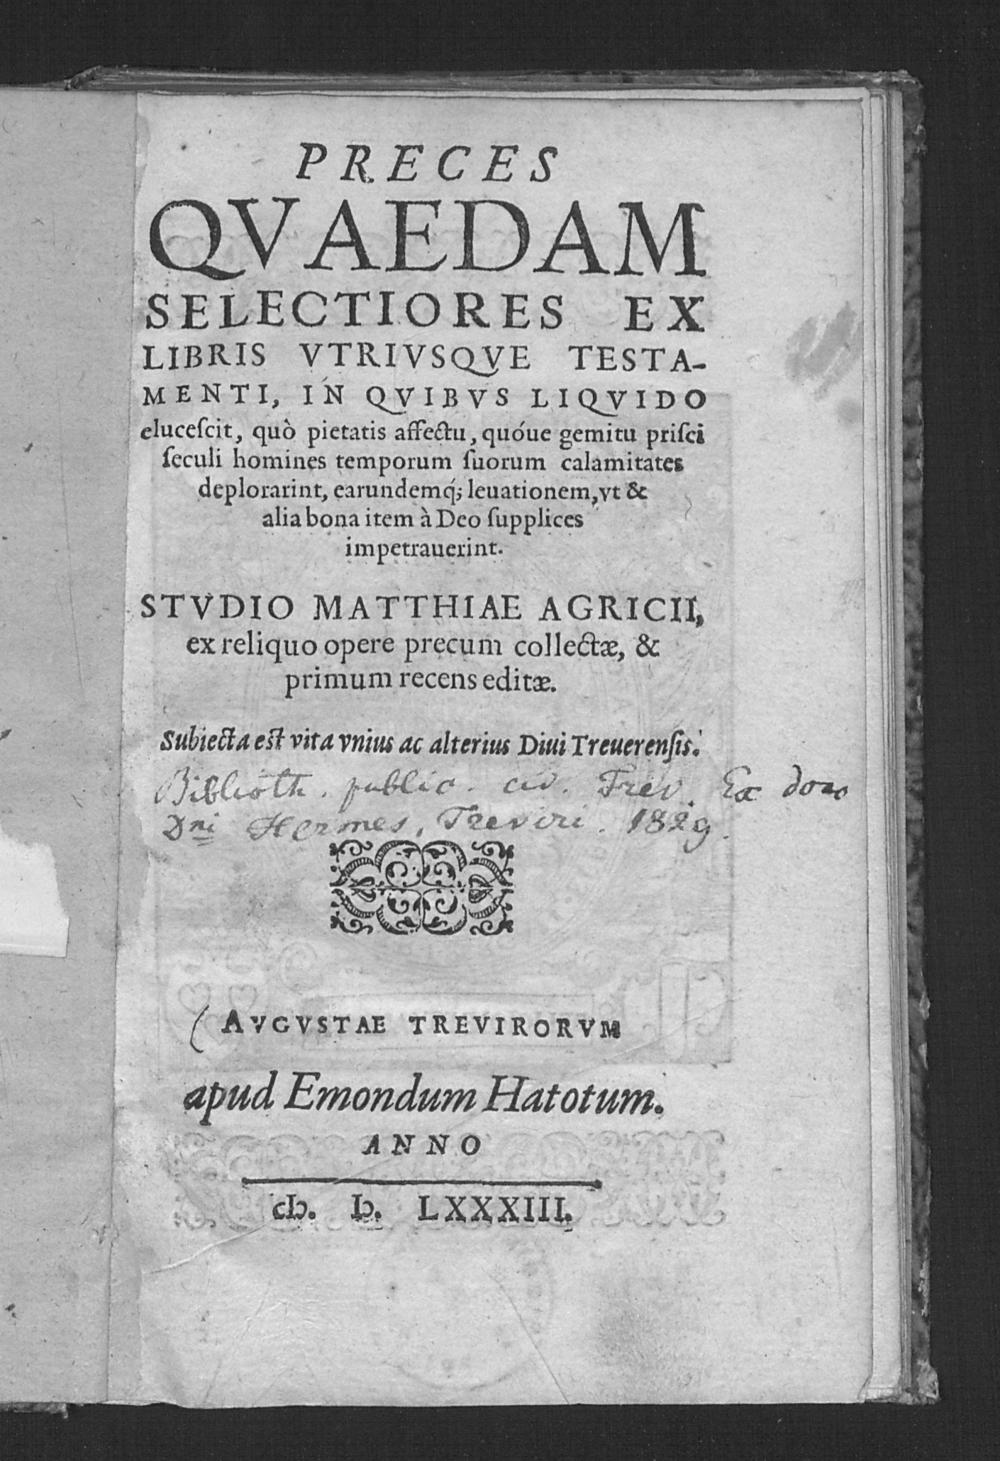 PRECES
QVAEDAM
SELECTIORES EX
LIBRIS VTRIVSQVE TESTA-
MENTI, IN QVIBVS LIQVIDO
eluceſcit, quò pietatis affectu, quóue gemitu priſci
ſeculi homines temporum ſuorum calamitates
deplorarint, earundemq́; leuationem, vt &
alia bona item à Deo ſupplices
impetrauerint.
STVDIO MATTHIAE AGRICII,
ex reliquo opere precum collectæ, &
primum recens editæ.
Subiecta est vita vnius ac alterius Diui Treuerenſis.
Biblioth. public. civ. Trev. Ex dono
Dni Hermes, Treviri. 1829.
AVGVSTAE TREVIRORVM
apud Emondum Hatotum.
ANNO
cIↄ. Iↄ. LXXXIII.